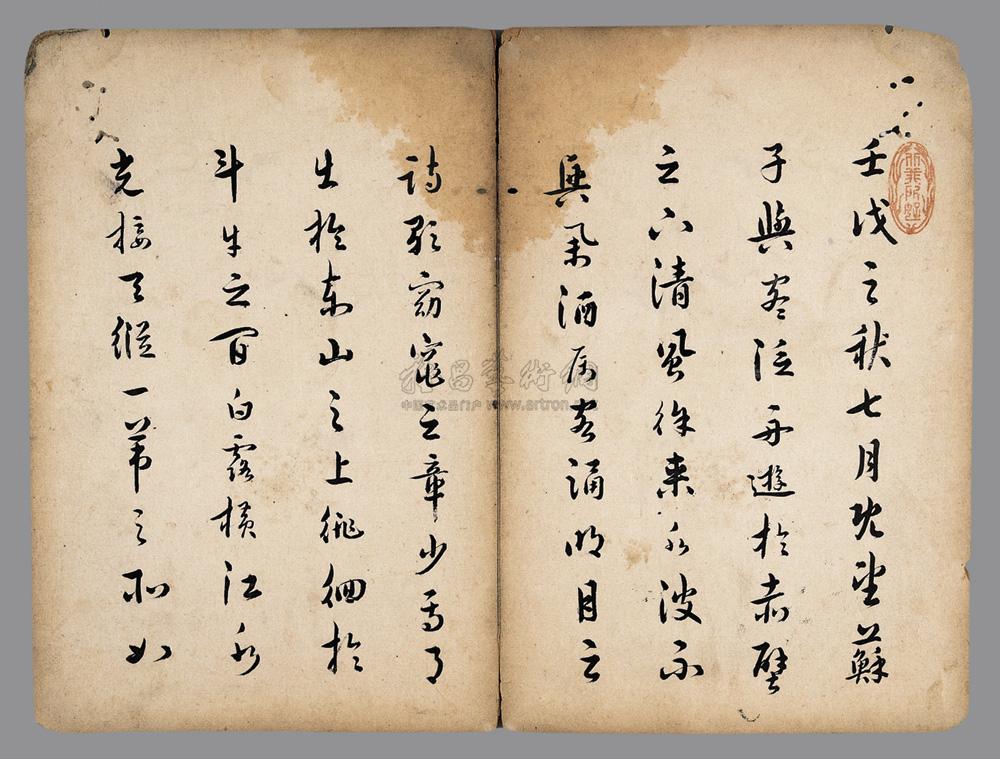 壬戌之秋七月既望蘇
子與客泛舟遊於赤壁
之下清風徐來水波不
興舉酒屬客誦明月之
詩歌窈窕之章少焉月
出於東山之上徘徊於
斗牛之間白露橫江水
光接天縱一葦之所如
雅昌藝術網
中国艺术品门户 www.artron.net